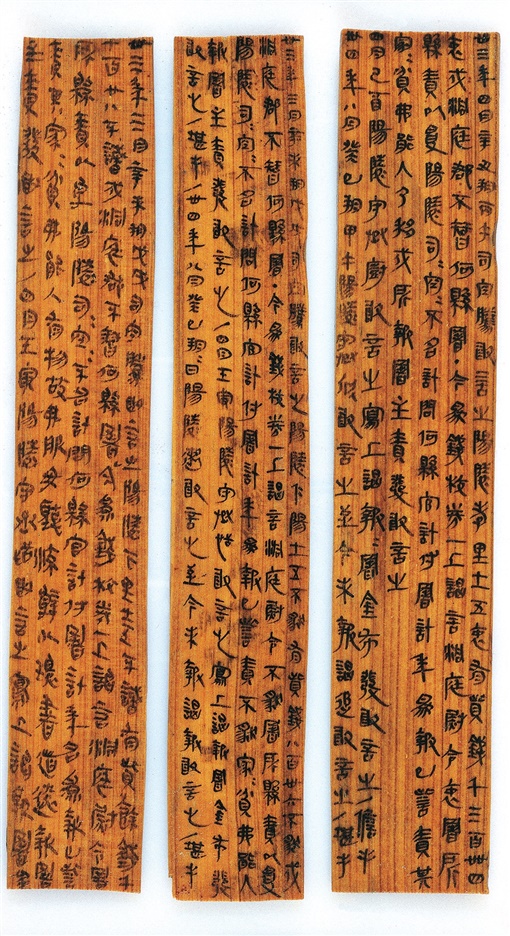 卅三年四月辛丑朔丙午司空騰敢言之陽陵孝里士五衷有貲錢千三百卌四
衷戍洞庭郡不智何縣署·今為錢校券一上謁言洞庭尉令衷署所
縣責以受陽陵司空=不名計問何縣官計付署計年為報已訾責其
家=貧弗能入乃移戍所報署主責發敢言之
四月己酉陽陵守丞廚敢言之寫上謁報=署金布發敢言之/儋手
卅四年八月癸巳朔甲午陽陵守丞欣敢言之至今未報謁追敢言之/堪手
卅三年三月辛未朔戊戌司空騰敢言之陽陵仁陽士五不有貲錢八百卅六不戍
洞庭郡不智何縣署·今為錢校券一上謁言洞庭尉令不署所縣責以受
陽陵司空=不名計問何縣官計付署計年為報已訾責不家=貧弗能入
報署主責發敢言之/四月壬寅陽陵守丞恬敢言之寫上謁報署金布發
敢言之/堪手/卅四年八月癸巳朔=日陽陵遫敢言之至今未報謁報敢言之/堪手
卅三年三月辛未朔戊戌司空騰敢言之陽陵下里士五不識有貲餘錢千
七百廿八不識戍洞庭郡不智何縣署今為錢校券一上謁言洞庭尉令署
所縣責以受陽陵司空=不名計問何縣官計付署計年名為報已訾
責其家=貧弗能入有物故弗服毋聽流辭以環書道遠報署
主責發敢言之/四月壬寅陽陵守丞恬敢言之寫上謁報署金